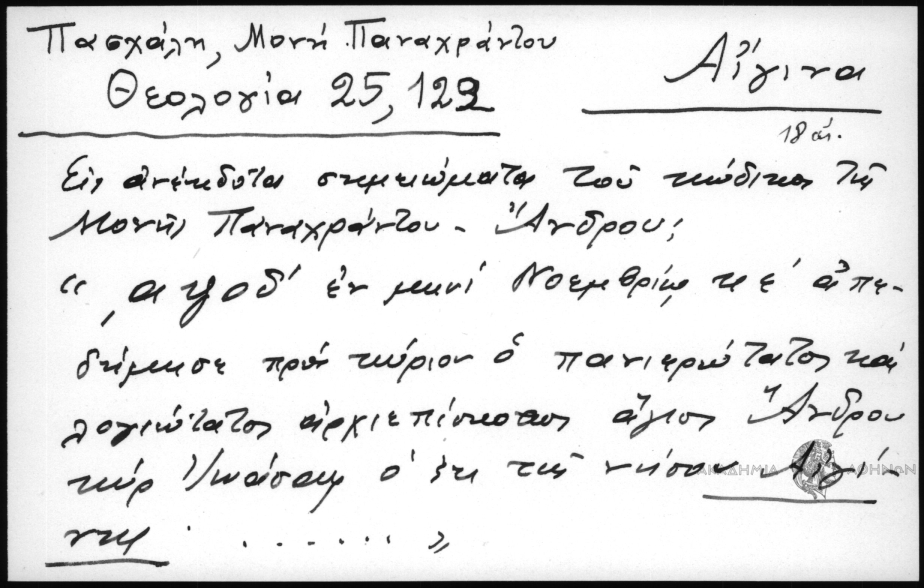 Πασχάλη, Μονή Παναχράντου
Θεολογία 25, 123
Αἴγινα
18 αἰ.
Εἰς ἀνέκδοτα σημειώματα τοῦ κώδικος τῆς
Μονῆς Παναχράντου - Ἄνδρου;
“ ͵αψοδ' ἐν μηνί Νοεμβρίῳ κε' ἀπε-
δήμησε πρός κύριον ὁ πανιερώτατος καί
λογιώτατος ἀρχιεπίσκοπος ἅγιος Ἄνδρου
κύρ Ἰωάσαφ ὁ ἐκ τῆς νήσου Αἰγί-
νης . . . . . . . »
ΑΚΑΔΗΜΙΑ ΑΘΗΝΩΝ